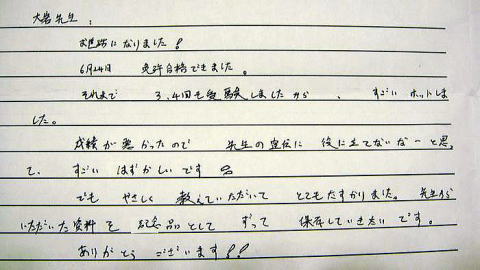 大岩先生:
お世話になりました!
6月24日 免許合格できました。
それまで 3.4回も受験しましたから 、 すごい ホットしま
した。
成績が悪かったので 先生の宣伝に 役に立てないなーと思っ
て、 すごい はずかしいです
でも やさしく 教えていただいて とてもたすかりました。 先生から
いただいた資料を 記念品として ずって 保存していきたいです。
ありがとう ございます!!